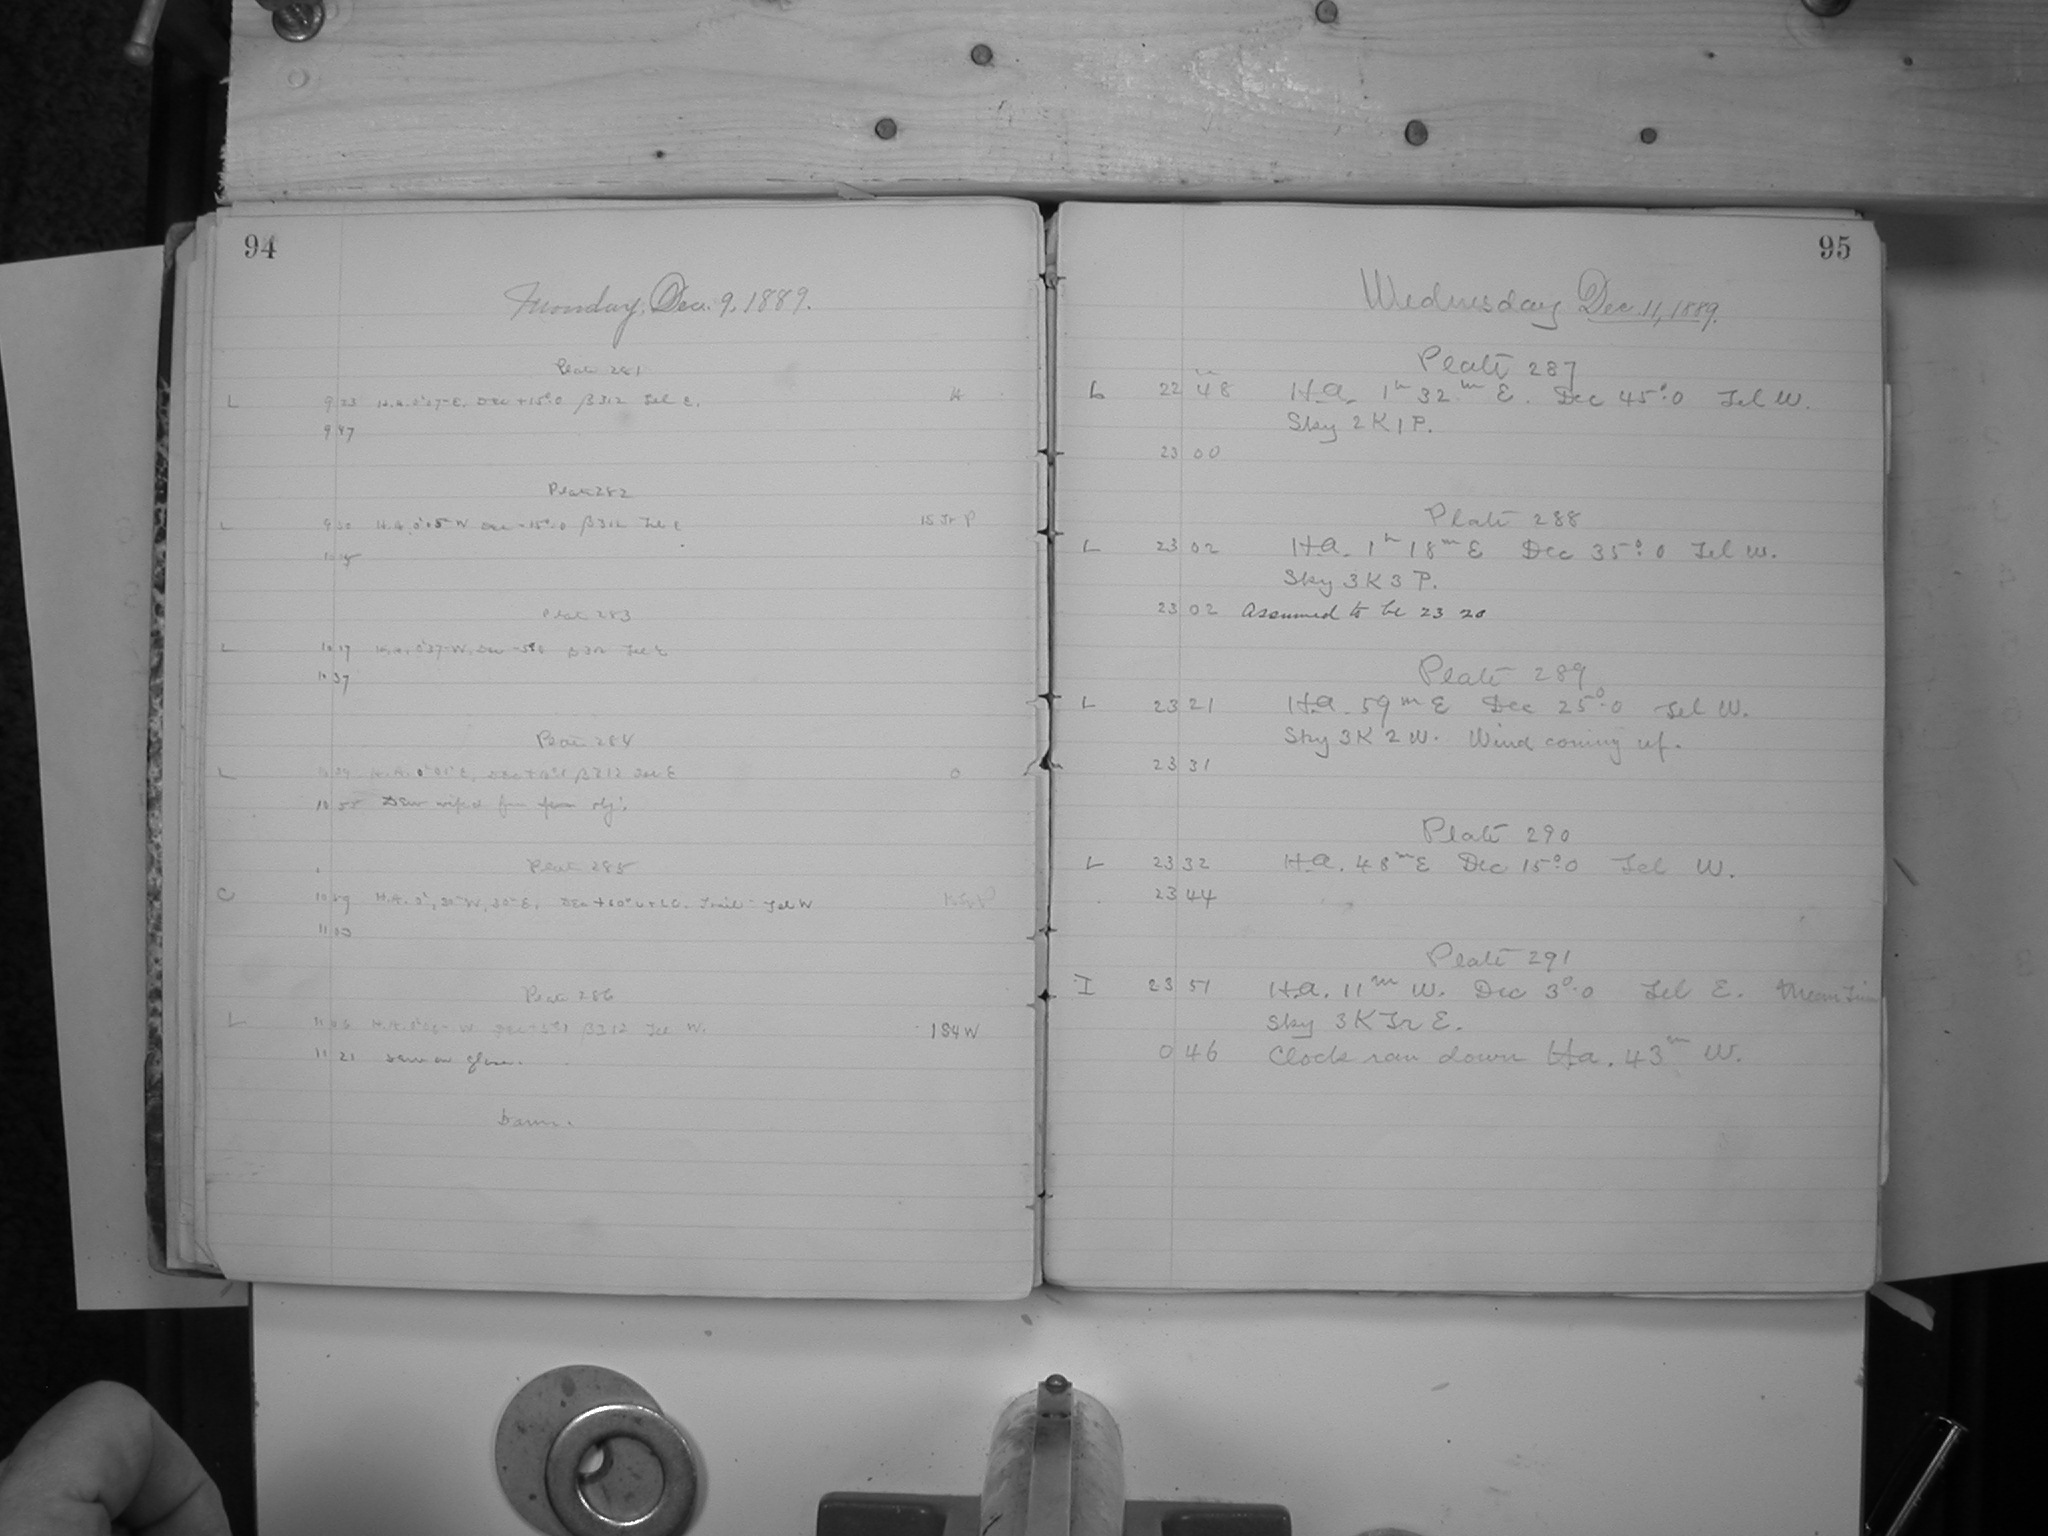 94
Monday, Dec. 9, 1889.
Plate 281
L 9 23 H.A. E. Dec +15°.0 β312 Tel E.
9 47
Plate 282
L 9 50 H.A. W Dec -15°.0 β312 Tel E 15 Jr P
10 15
Plate 283
L 10 17 H.A. W. Dec Tel E
10 37
Plate 284
L H.A. E. Dec β312 Tel E
10 55 Dew wiped from obj.
Plate 285
C 10 59 H.A. 30m W, 30m E. Dec +60° U+LC. Trail Tel W
11 02
Plate 286
L H.A. W Dec β312 Tel W. 184W
11 21 Dew on glass.
Dawn.
95
Wednesday Dec. 11, 1889.
Plate 287
L 22 48 H.a. 1h 32m E. Dec 45°.0 Tel W.
Sky 2 K 1 P.
23 00
Plate 288
L 23 02 H.a. 1h 18m E Dec 35°.0 Tel W.
Sky 3 K 3 P.
23 02 Assumed to be 23 20
Plate 289
L 23 21 H.a. 59m E Dec 25°.0 Tel W.
Sky 3 K 2 W. Wind coming up.
23 31
Plate 290
L 23 32 H.a. 48m E Dec 15°.0 Tel W.
23 44
Plate 291
I 23 51 H.a. 11m W. Dec 3°.0 Tel E. Mean Time
Sky 3 K Jr E.
0 46 Clock ran down H.a. 43m W.